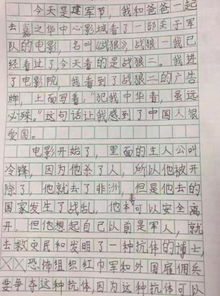 今天是建军节，我和爸爸一起
去影之华中心影城看了一部关于军
队的电影，名叫《战狼》。战狼一我已
经看过了今天看的是战狼二。我进
了电影院，我看到了战狼二的广告
牌，上面写着："犯我中华者，虽远
必殊。"这句话让我感到了中国人很
爱国。
电影开始了，里面的主人公叫
冷锋，因为他杀了人，所以他被开
除了，他就去了非洲，但是他去的
国家发生了战乱，他本可以安全离
开，但他想起自己以前是军人，就
去救灾民和发明了一种抗体的博士
恐怖组织红巾军和外国雇佣兵
要争夺这种抗体因为这种抗体可以